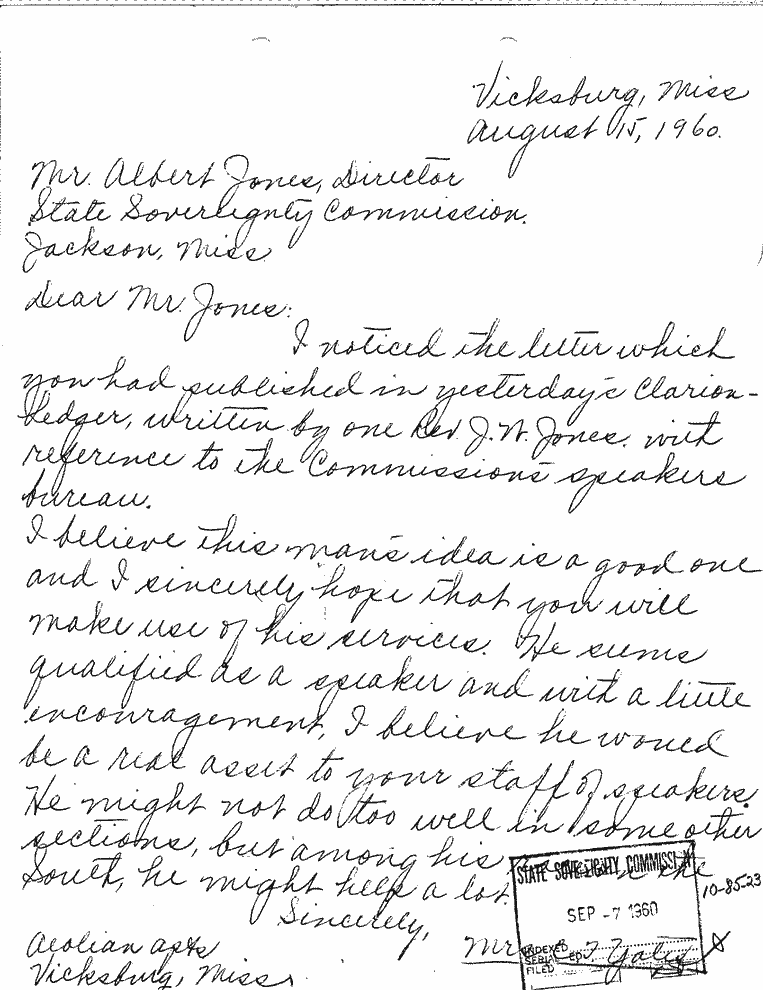 Vicksburg, Miss
August 15, 1960.
Mr. Albert Jones, Director
State Sovereignty Commission.
Jackson, Miss
Dear Mr. Jones:
I noticed the letter which
you had published in yesterday's Clarion-
Ledger, written by one Rev. J. W. Jones. with
reference to the Commission's speakers
bureau.
I believe this man's idea is a good one
and I sincerely hope that you will
make use of his services. He seems
qualified as a speaker and with a little
encouragement, I believe he would
be a real asset to your staff of speakers.
He might not do too well in some other
sections, but among his in the
South, he might help a lot
Sincerely,
Mr
Aeolian apts
Vicksburg, Miss.
STATE SOVEREIGNTY COMMISSION
10-8523
SEP -7 1960
INDEXED
SERIALIZED
FILED